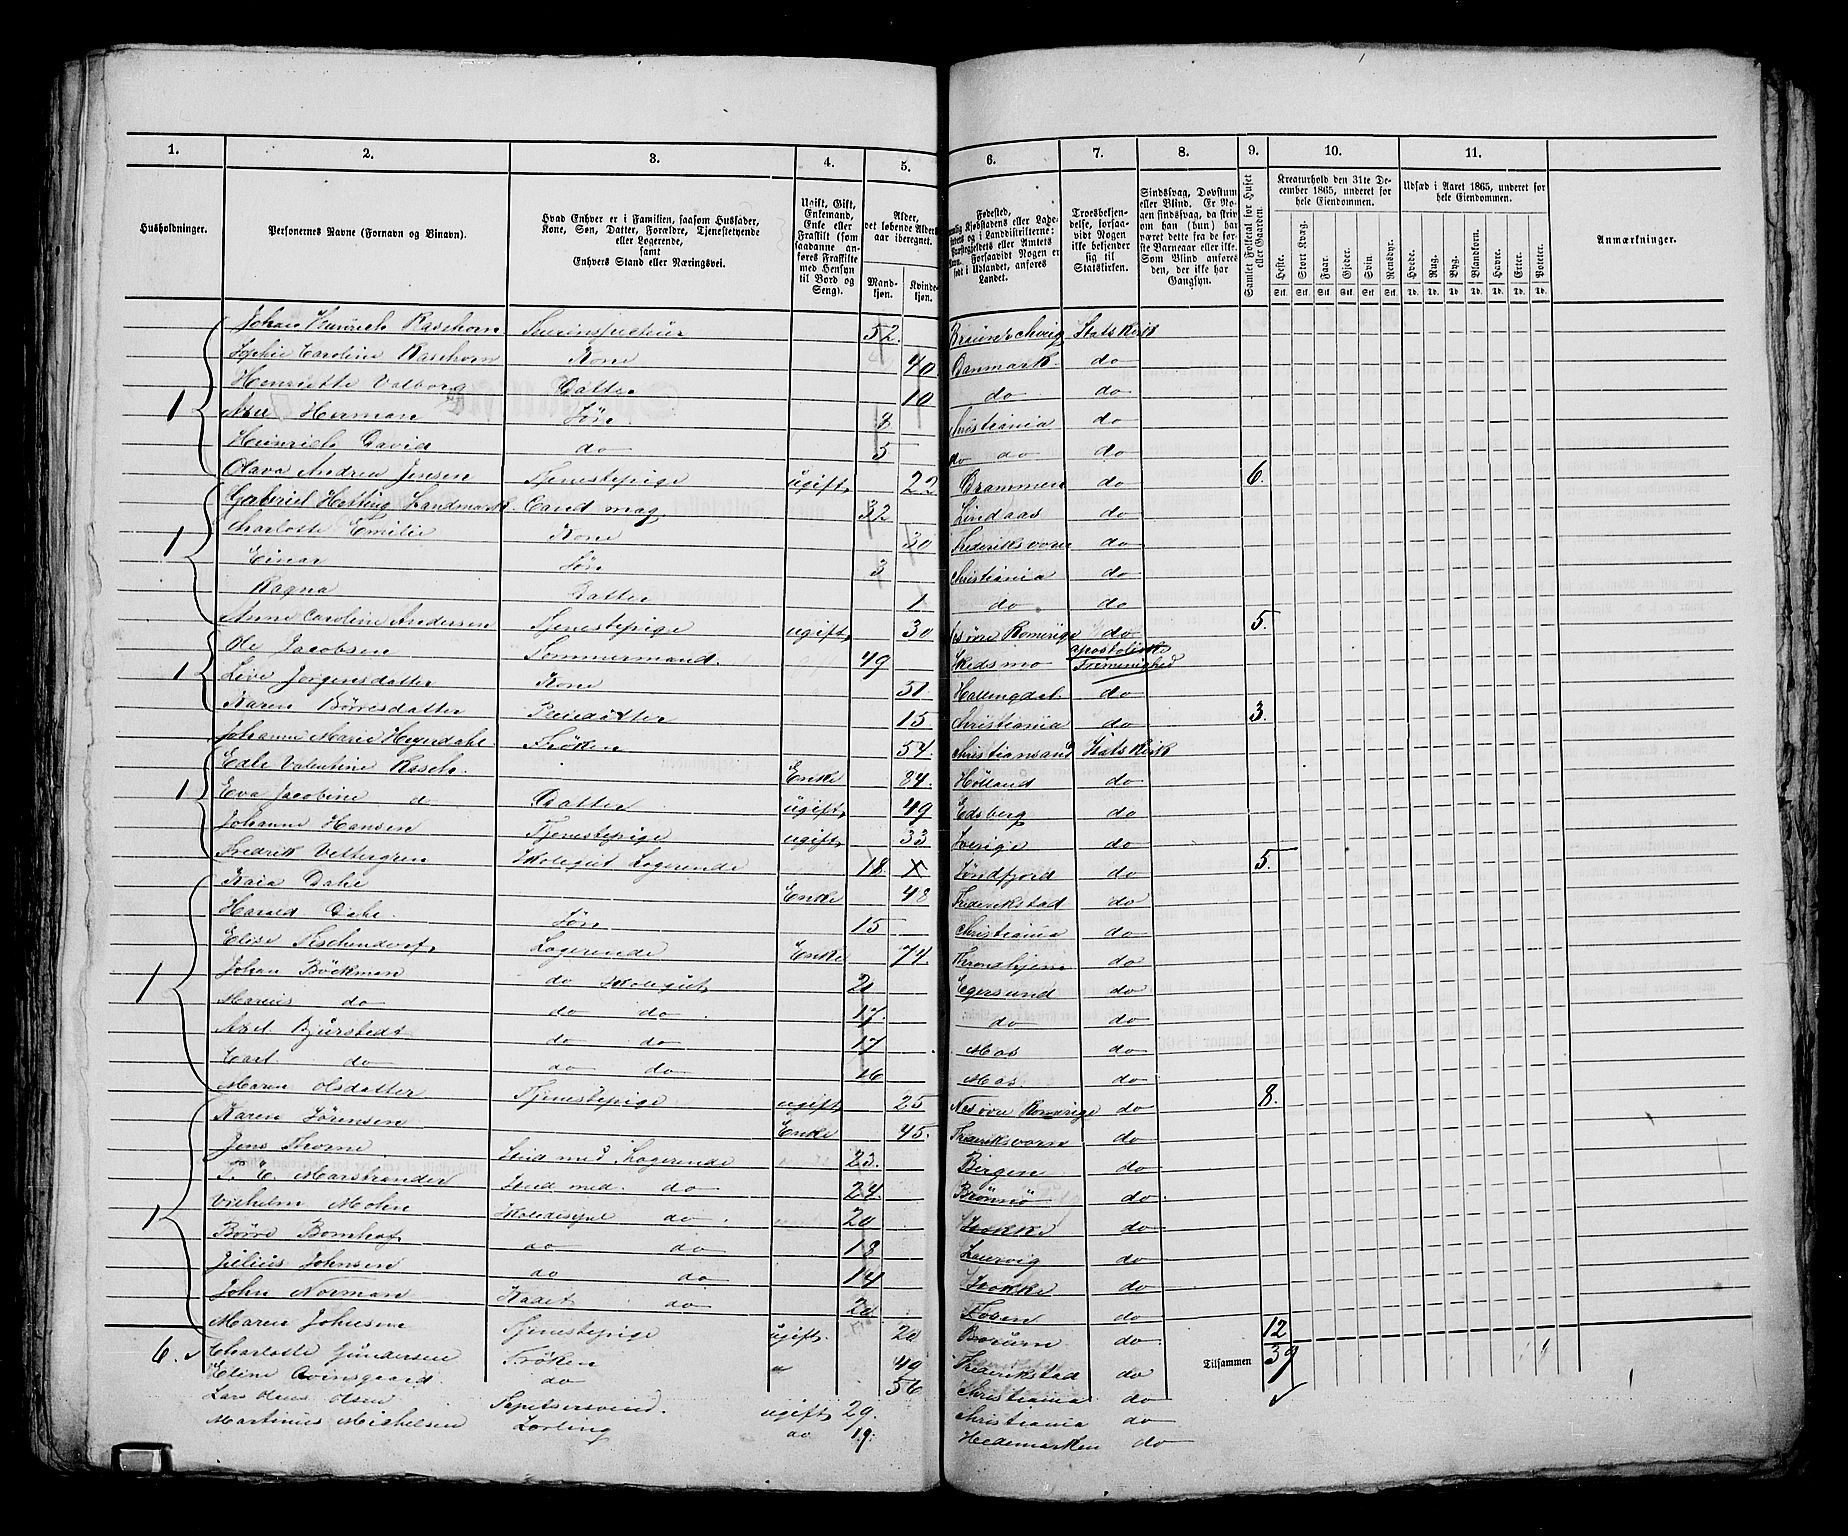 1. 2. 3. 4. 5. 6. 7. 8. 9. 10. 11.
Husholdninger.
Personernes Navne (Fornavn og Binavn).
Hvad Enhver er i Familien, saasom Husfader, Kone, Søn, Datter, Forældre, Tjenestetyende eller Logerende, samt Enhvers Stand eller Næringsvei.
Ugift, Gift, Enkemand, Enke eller Fraskilt (som saadanne anføres Fraskilte med Hensyn til Bord og Seng).
Alder, det løbende Aldersaar iberegnet.
Mandkjøn. Kvindekjøn.
Fødested,
Forsaavidt Nogen er født i Udlandet, anføres Landet.
Troesbekjendelse, forsaavidt Nogen ikke bekjender sig til Statskirken.
Sindssvag, Døvstum eller Blind. Er Nogen sindssvag, da skrives om han (hun) har været dette fra de første Barneaar eller ikke. Som Blind anføres den, der ikke har Gangsyn.
Samlet Folketal for Huset eller Gaarden.
Kreaturhold den 31te December 1865, underet for hele Eiendommen.
Heste. Stort Kvæg. Faar. Gjeder. Svin. Rensdyr.
Stk. Stk. Stk. Stk. Stk. Stk.
Udsæd i Aaret 1865, underet for hele Eiendommen.
Hvede. Rug. Byg. Blandkorn. Havre. Erter. Poteter.
Td. Td. Td. Td. Td. Td. Td.
Anmærkninger.
Johan Hinrich Rasehorn 52. Statskirk
Sophie Caroline Rasehorn Kone 40 Danmark do
Henriette Valborg Datter 10 do do
1 Axel Herman Søn 8 Christiania do
Heinrich David do 5 do do do
Olava Andrea Jensen Tjenestepige ugift 22 Drammen do 6.
Gabriel Landmark Cand mag 32 Lindaas do
1 Charlotte Emilie Kone 30 Frederiksvorn do
Einar Søn 3 Christiania do
Ragna Datter 1 do do
Anne Caroline Andersen Tjenestepige ugift 30 Nes øvre Romerige do 5.
Ole Jacobsen Tømmermand. 49 Skedsmo Apostoliske Fremenighed
1 Live Jørgensdatter Kone 51. Hallingdal do
Karen Børresdatter Pleiedatter 15 Christiania do 3.
Johanne Marie Heyerdahl. Frøken 54. Christiansand Statskirk
Edle Valentine Rasch. Enke 84. Høland do
1 Eva Jacobine do Datter ugift 49 Edsberg do
Johanne Hansen Tjenestepige ugift 33 Sverige do
Fredrik Vettergren Skolegut Logerende 18. x Søndfjord do 5.
Kaia Dahl Enke 48 Frederikstad do
Harald Dahl. Søn 15 Christiania do
Elise Tischendorf Logerende Enke 74. Throndhjem do
1 Johan Böckman do Skolegut 21 Egersund do
Marius do do do. 17. do do
Axel Bjurstedt do do 17 Mos do
Carl do do do 16 Mos do
Maren Olsdatter Tjenestepige ugift 25 Nes øvre Romerige do 8.
Karen Sørensen Enke 45. Frederiksvorn do
Jens Thorne Stud med Logerende 23. Bergen do
T. E. Marstrander Stud med. do 24. Brønnø do
1 Vilhelm Mohn Skoledisipel do. 20 do
Børre Bomhof do do 18 Laurvig do
Julius Johnsen do do 14 do
John Norman Kadet do 20 Fosen do
Maren Johnsen Tjenestepige ugift. 20 Bærum do 12
6. Charlotte Gundersen Frøken " 49 Frederikstad do Tilsammen 39
Eline Qvinsgaard do 56 Christiania do
Lars Olsen ugift 29. Christiania do
Martinus Mickelsen Lærling do 19. Hedemarken do